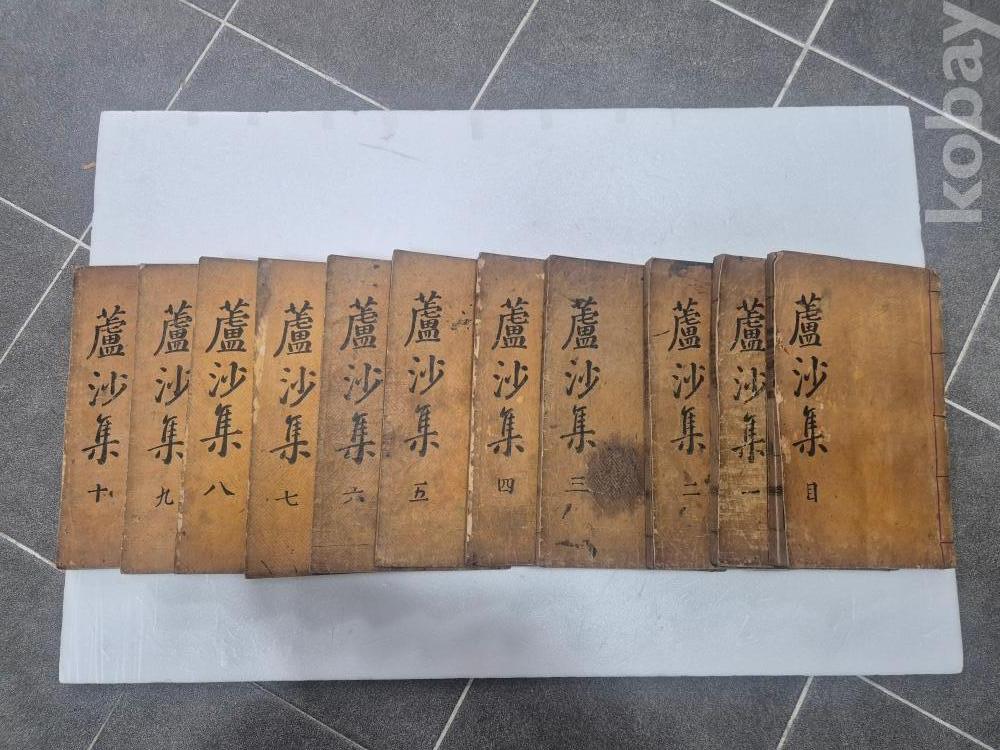 蘆沙集 目
蘆沙集 一
蘆沙集 二
蘆沙集 三
蘆沙集 四
蘆沙集 五
蘆沙集 六
蘆沙集 七
蘆沙集 八
蘆沙集 九
蘆沙集 十
kobay